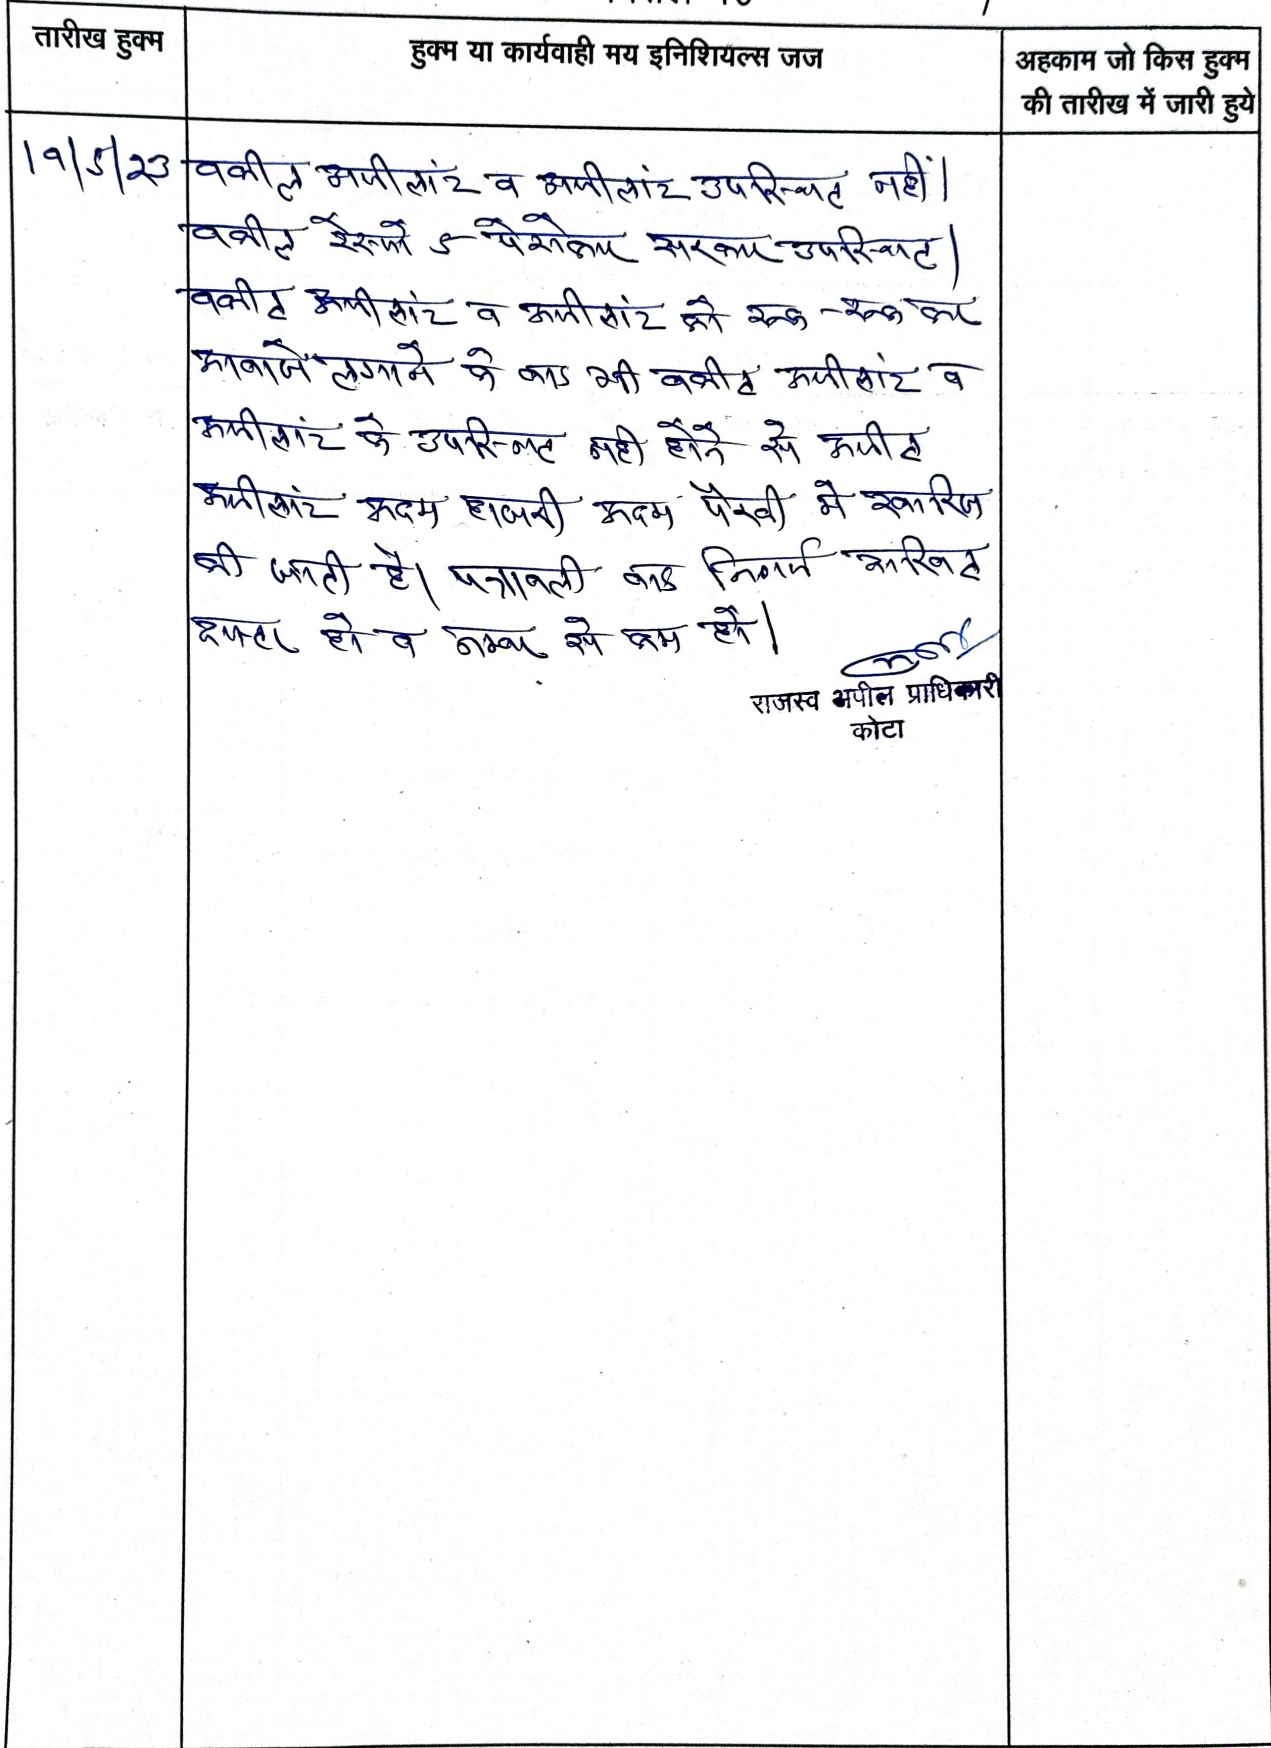 तारीख हुक्म
हुक्म या कार्यवाही मय इनिशियल्स जज
अहकाम जो किस हुक्म
की तारीख में जारी हुये
19/5/23
वकील अपीलांट व अपीलांट उपस्थित नहीं।
वकील रेस्पो 5 पैरोकार सरकार उपस्थित।
वकील अपीलांट व अपीलांट को रूक-रूक कर
आवाजें लगाने के बाद भी वकील अपीलांट व
अपीलांट के उपस्थित नही होने से अपील
अपीलांट अदम हाजरी अदम पैरवी मे खारिज
की जाती है। पत्रावली बाद निर्णय दाखिल
दफ्तर हो व नम्बर से कम हो।
राजस्व अपील प्राधिकारी
कोटा